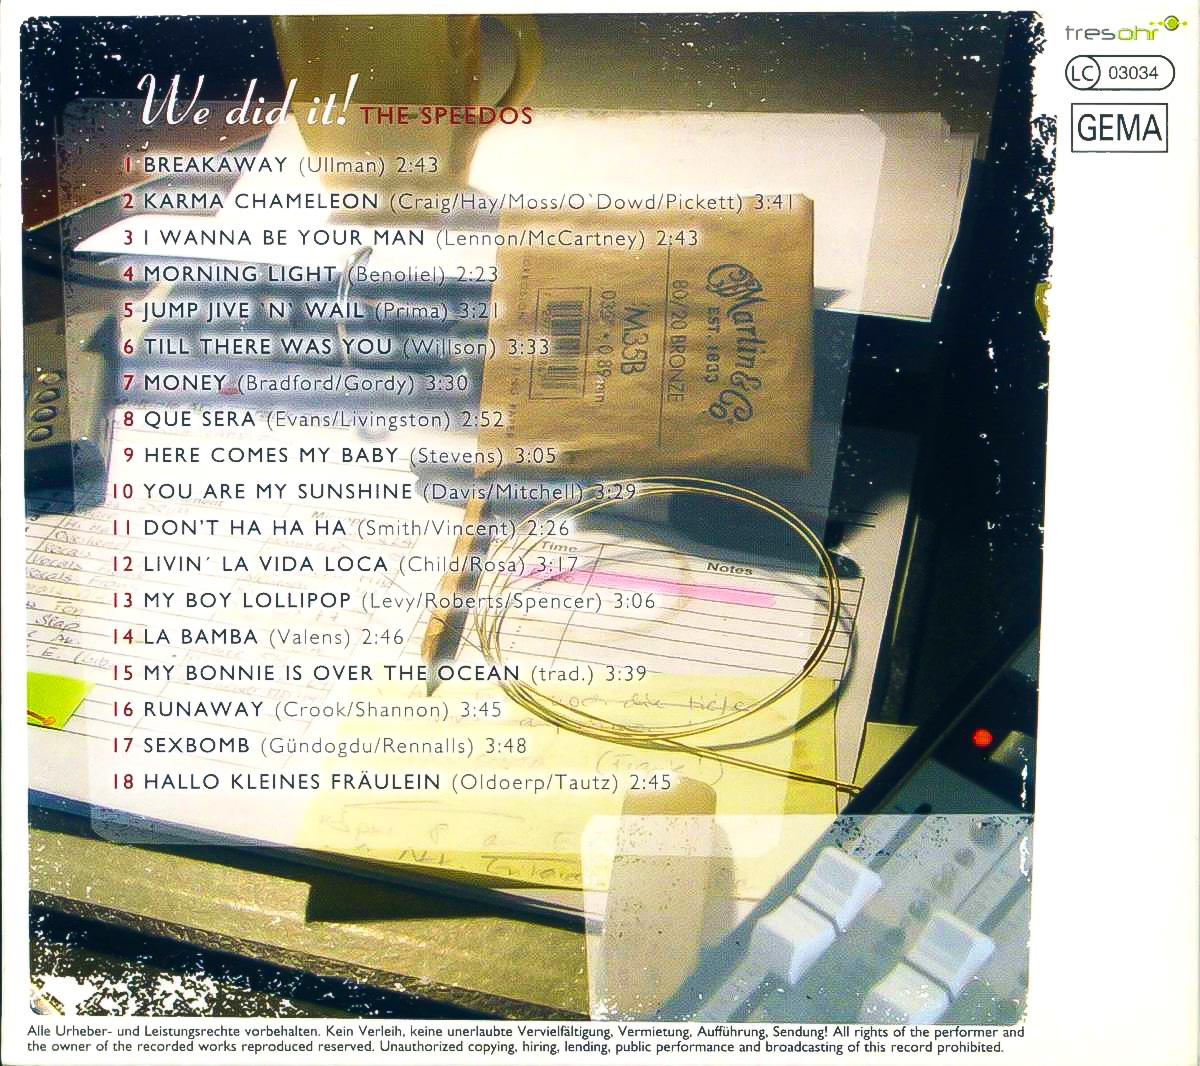 We did it! THE SPEEDOS
tresohr
LC 03034
GEMA
1 BREAKAWAY (Ullman) 2:43
2 KARMA CHAMELEON (Craig/Hay/Moss/O`Dowd/Pickett) 3:41
3 I WANNA BE YOUR MAN (Lennon/McCartney) 2:43
4 MORNING LIGHT (Benoliel) 2:23
5 JUMP JIVE `N` WAIL (Prima) 3:21
6 TILL THERE WAS YOU (Willson) 3:33
7 MONEY (Bradford/Gordy) 3:30
8 QUE SERA (Evans/Livingston) 2:52
9 HERE COMES MY BABY (Stevens) 3:05
10 YOU ARE MY SUNSHINE (Davis/Mitchell) 3:29
11 DON'T HA HA HA (Smith/Vincent) 2:26
12 LIVIN´ LA VIDA LOCA (Child/Rosa) 3:17
13 MY BOY LOLLIPOP (Levy/Roberts/Spencer) 3:06
14 LA BAMBA (Valens) 2:46
15 MY BONNIE IS OVER THE OCEAN (trad.) 3:39
16 RUNAWAY (Crook/Shannon) 3:45
17 SEXBOMB (Gündogdu/Rennalls) 3:48
18 HALLO KLEINES FRÄULEIN (Oldoerp/Tautz) 2:45
Martin & Co.
EST. 1833
80/20 BRONZE
M35B
Time
Notes
Alle Urheber- und Leistungsrechte vorbehalten. Kein Verleih, keine unerlaubte Vervielfältigung, Vermietung, Aufführung, Sendung! All rights of the performer and
the owner of the recorded works reproduced reserved. Unauthorized copying, hiring, lending, public performance and broadcasting of this record prohibited.